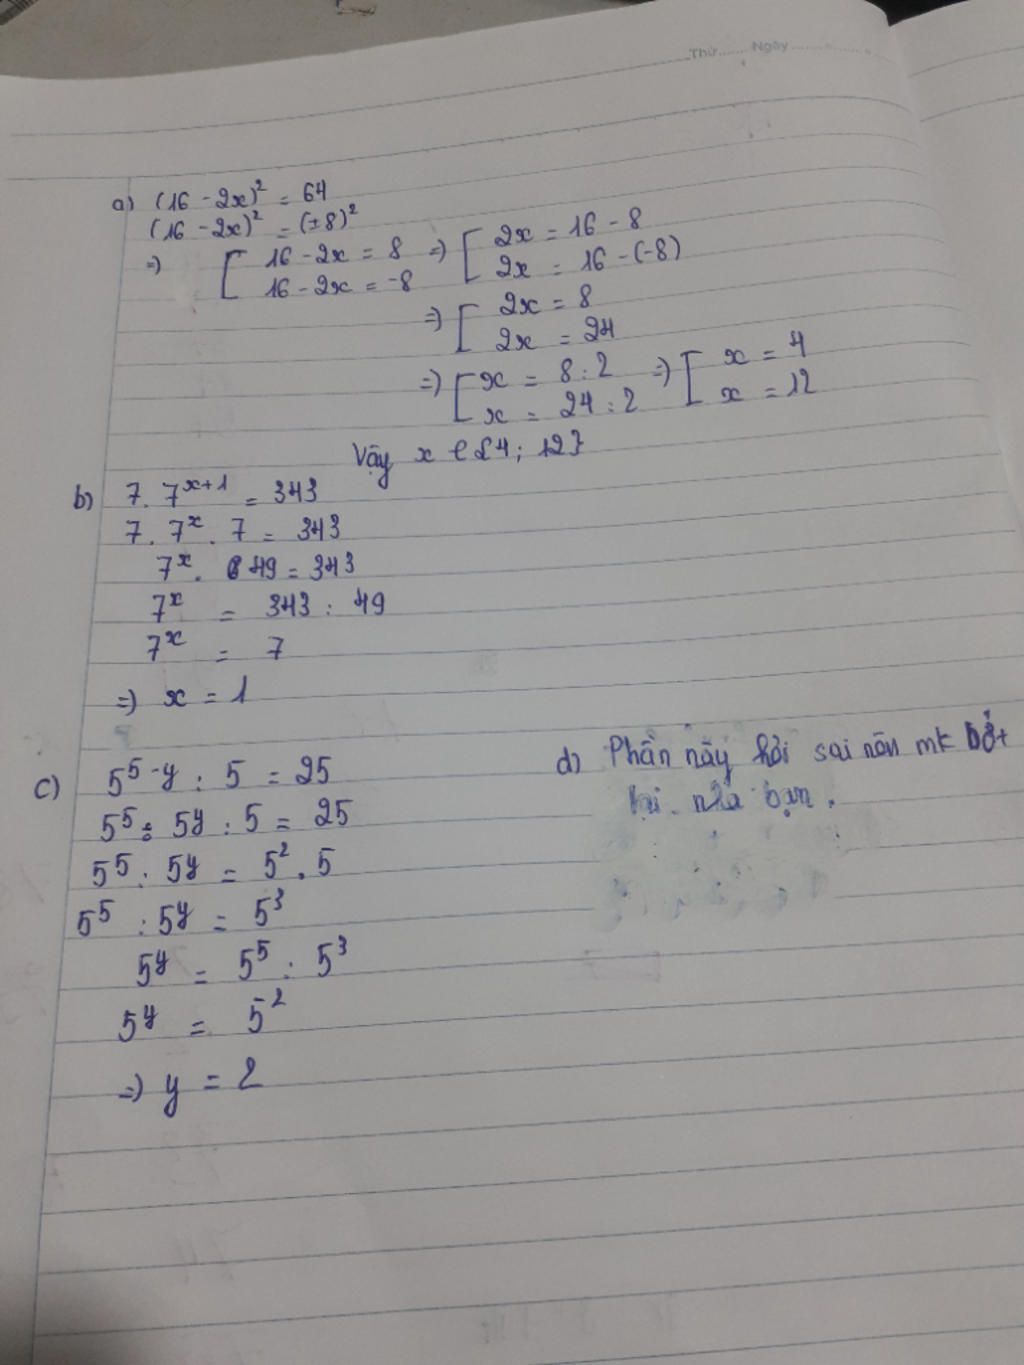 Thứ Ngày
a) (16 - 2x)² = 64
(16 - 2x)² = (±8)²
=> [ 16 - 2x = 8 => [ 2x = 16 - 8
16 - 2x = -8 2x = 16 - (-8)
=> [ 2x = 8
2x = 24
=> [ x = 8 : 2 => [ x = 4
x = 24 : 2 x = 12
Vậy x ∈ {4; 12}
b) 7. 7ˣ⁺¹ = 343
7. 7ˣ. 7 = 343
7ˣ. 49 = 343
7ˣ = 343 : 49
7ˣ = 7
=> x = 1
c) 5⁵⁻ʸ : 5 = 25
5⁵ : 5ʸ : 5 = 25
5⁵ : 5ʸ = 5² . 5
5⁵ : 5ʸ = 5³
5ʸ = 5⁵ : 5³
5ʸ = 5²
=> y = 2
d) Phần này hơi sai nên mk
nha bạn.